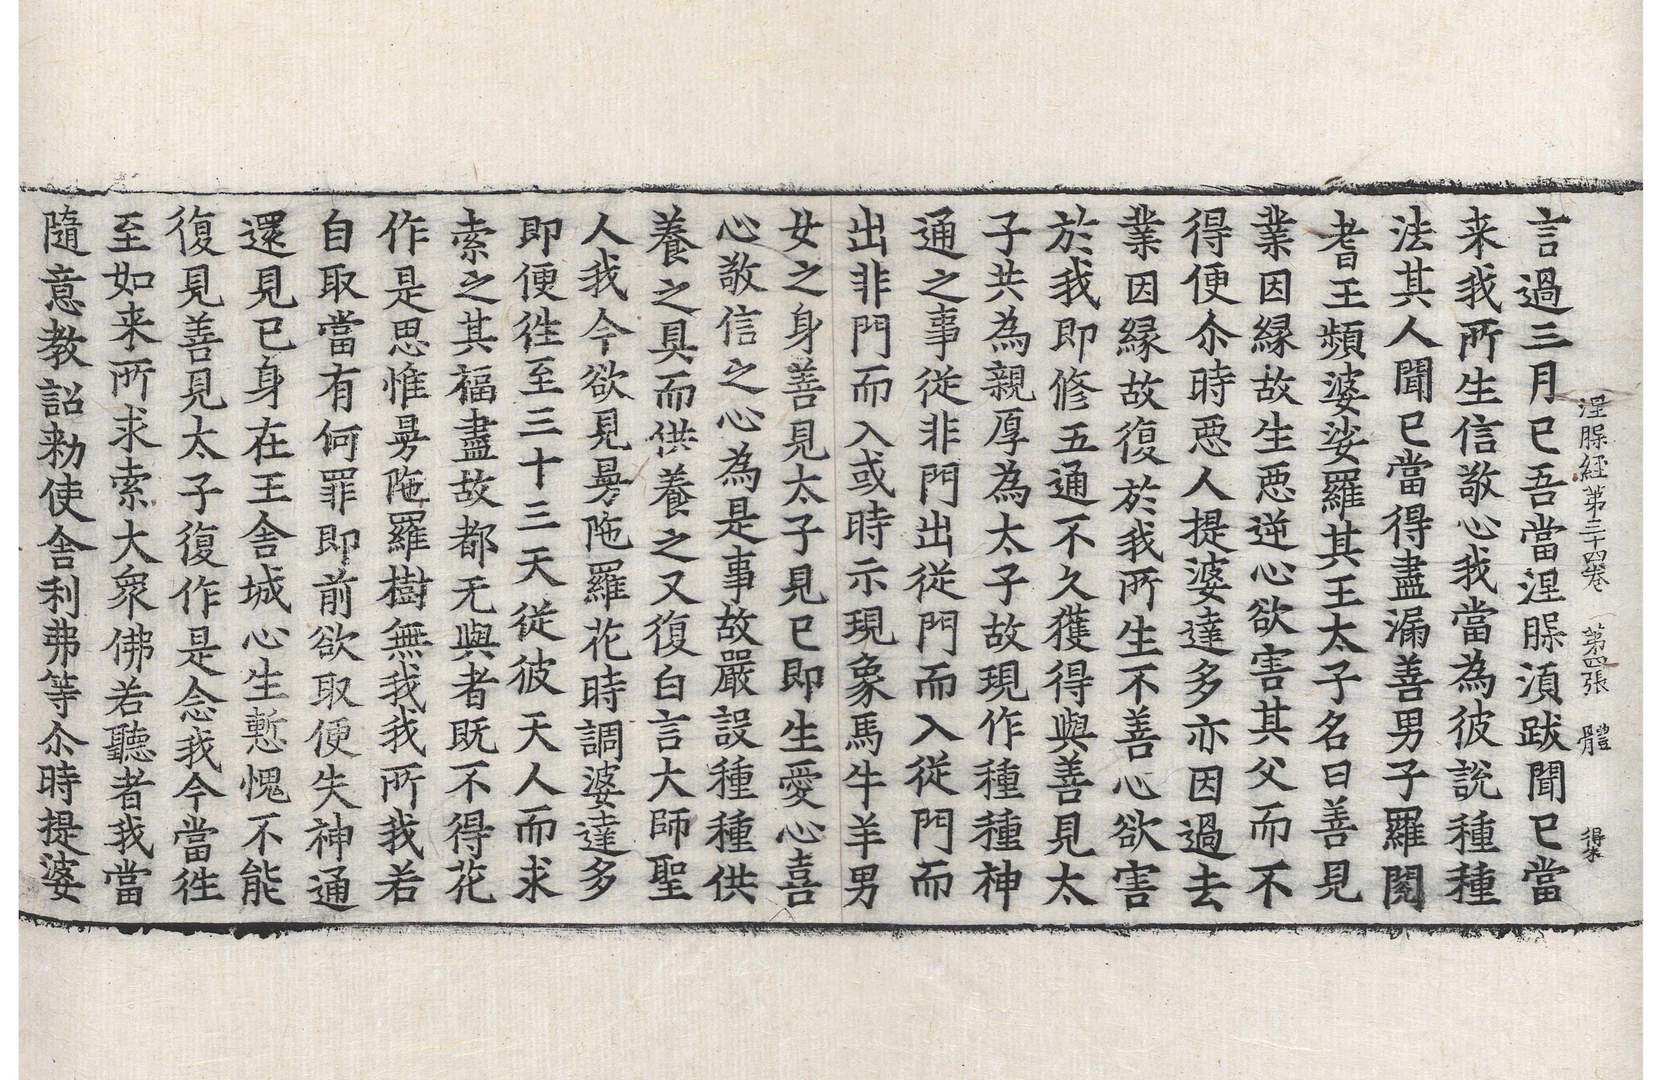 涅槃経第三十四卷　第四張　體
言過三月已吾當涅槃湏跋聞已當
来我所生信敬心我當為彼說種種
法其人聞已當得盡漏善男子羅閱
耆王頻婆娑羅其王太子名曰善見
業因縁故生惡逆心欲害其父而不
得便尒時惡人提婆達多亦因過去
業因縁故復於我所生不善心欲害
於我即修五通不久獲得與善見太
子共為親厚為太子故現作種種神
通之事從非門出從門而入從門而
出非門而入或時示現象馬牛羊男
女之身善見太子見已即生愛心喜
心敬信之心為是事故嚴設種種供
養之具而供養之又復白言大師聖
人我今欲見曼陁羅花時調婆達多
即便徃至三十三天從彼天人而求
索之其福盡故都无與者既不得花
作是思惟曼陁羅樹無我我所我若
自取當有何罪即前欲取便失神通
還見己身在王舍城心生慙愧不能
復見善見太子復作是念我今當徃
至如来所求索大衆佛若聽者我當
隨意教詔勑使舍利弗等尒時提婆